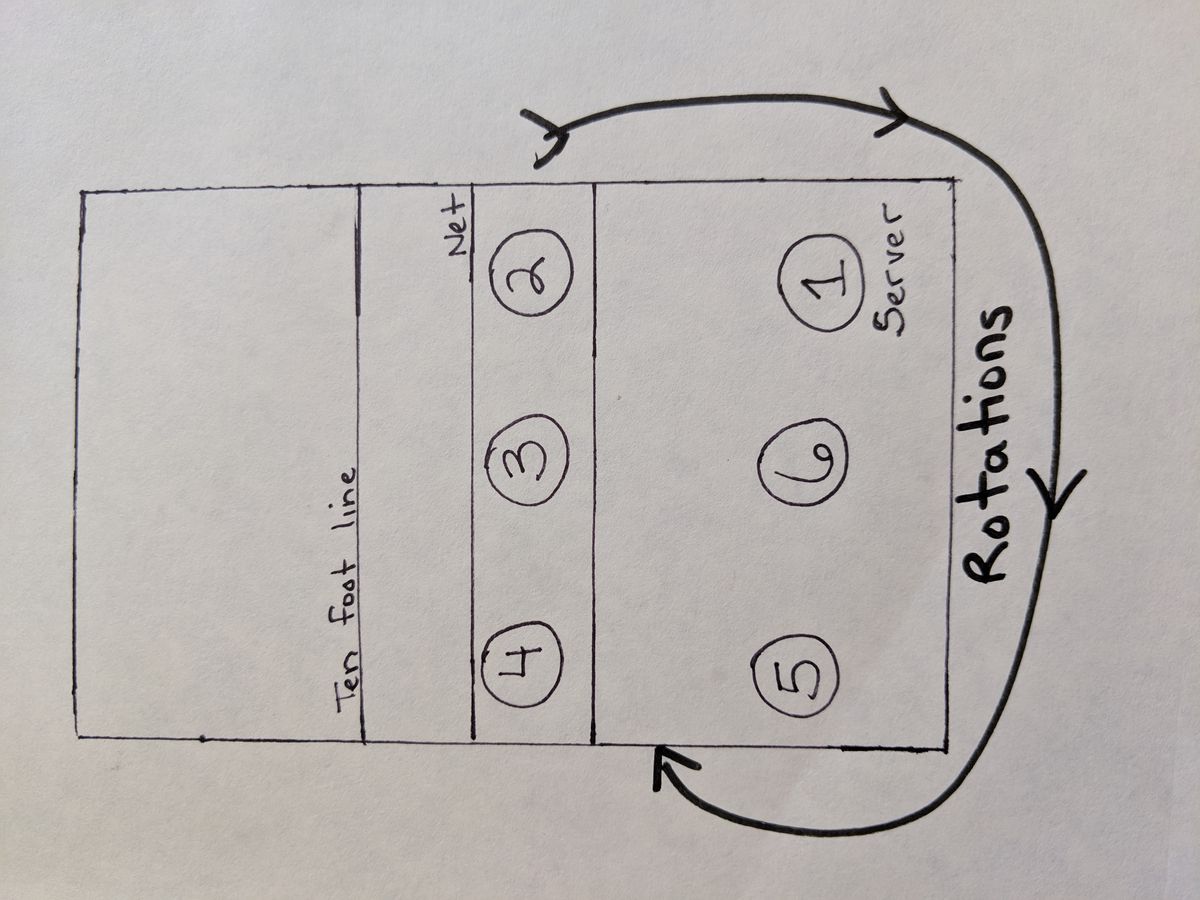 Ten foot line
Net
4 3 2
5 6 1
Server
Rotations